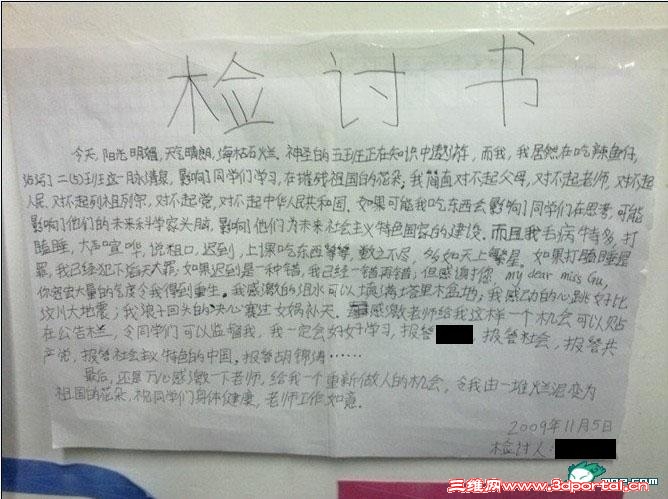 检讨书
今天,阳光明媚,天气晴朗,海枯石烂.神圣的五班正在知识中遨游,而我,我居然在吃辣鱼仔,
玷污了二(5)班这一脉清泉,影响了同学们学习,在摧残祖国的花朵;我简直对不起父母,对不起老师,对不起
人民,对不起列祖列宗,对不起党,对不起中华人民共和国.如果可能我吃东西会影响了同学们在思考,可能
影响了他们的未来科学家头脑,影响了他们为未来社会主义特色国家的建设.而且我毛病特多,打
瞌睡,大声喧哗,说粗口,迟到,上课吃东西等等,数之不尽,多如天上繁星.如果打瞌睡是
罪,我已经犯下滔天大罪;如果迟到是一种错,我已经一错再错;但感谢了您my dear miss Gu,
你宽宏大量的气度令我得到重生.我感激的泪水可以填满塔里木盆地;我感动的心跳好比
汶川大地震;我浪子回头的决心赛过女娲补天.感激老师给我这样一个机会可以贴
在公告栏,令同学们可以监督我,我一定会好好学习,报答 ,报答社会,报答共
产党,报答社会主义特色的中国,报答胡锦涛……
最后,还是万心感激一下老师,给我一个重新做人的机会,令我由一堆烂泥变为
祖国的花朵,祝同学们身体健康,老师工作如意.
2009年11月5日
检讨人:
三维网www.3dportal.cn